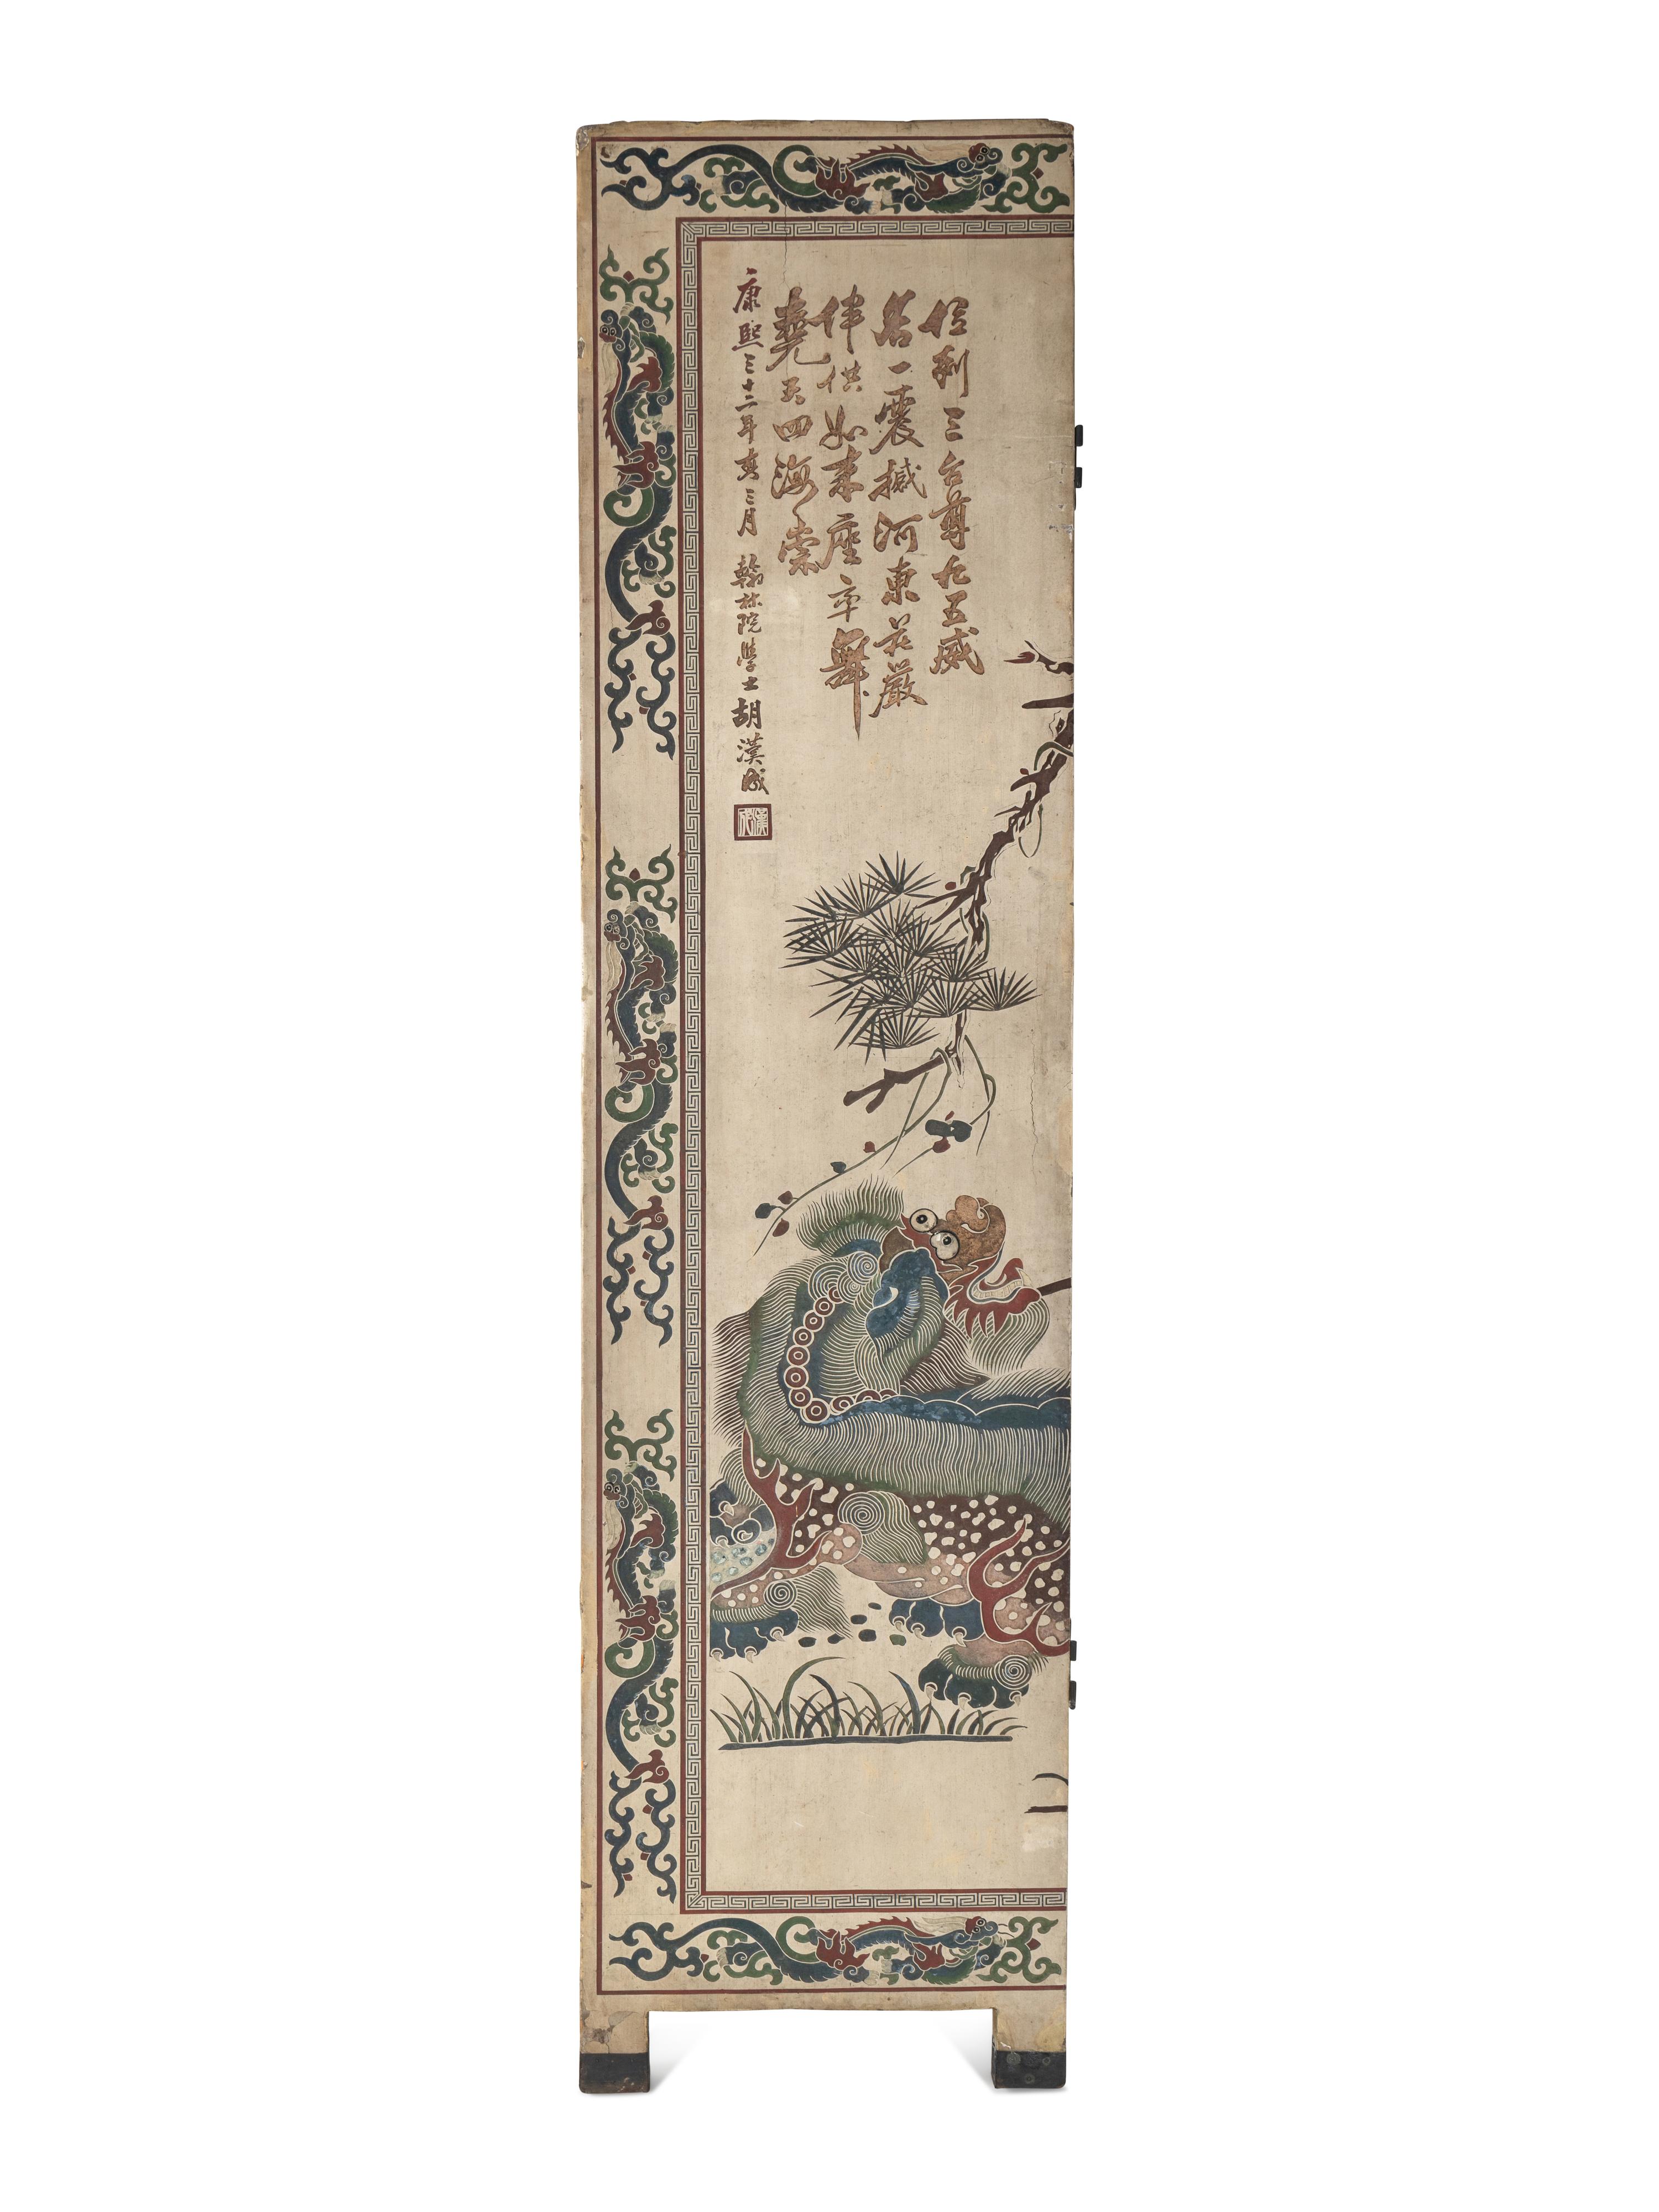 位列三台尊九五威
名一震撼河東莊嚴
伴供如來座率舞
堯天四海崇
康熙三十二年春三月 翰林院學士胡漢成
漢成